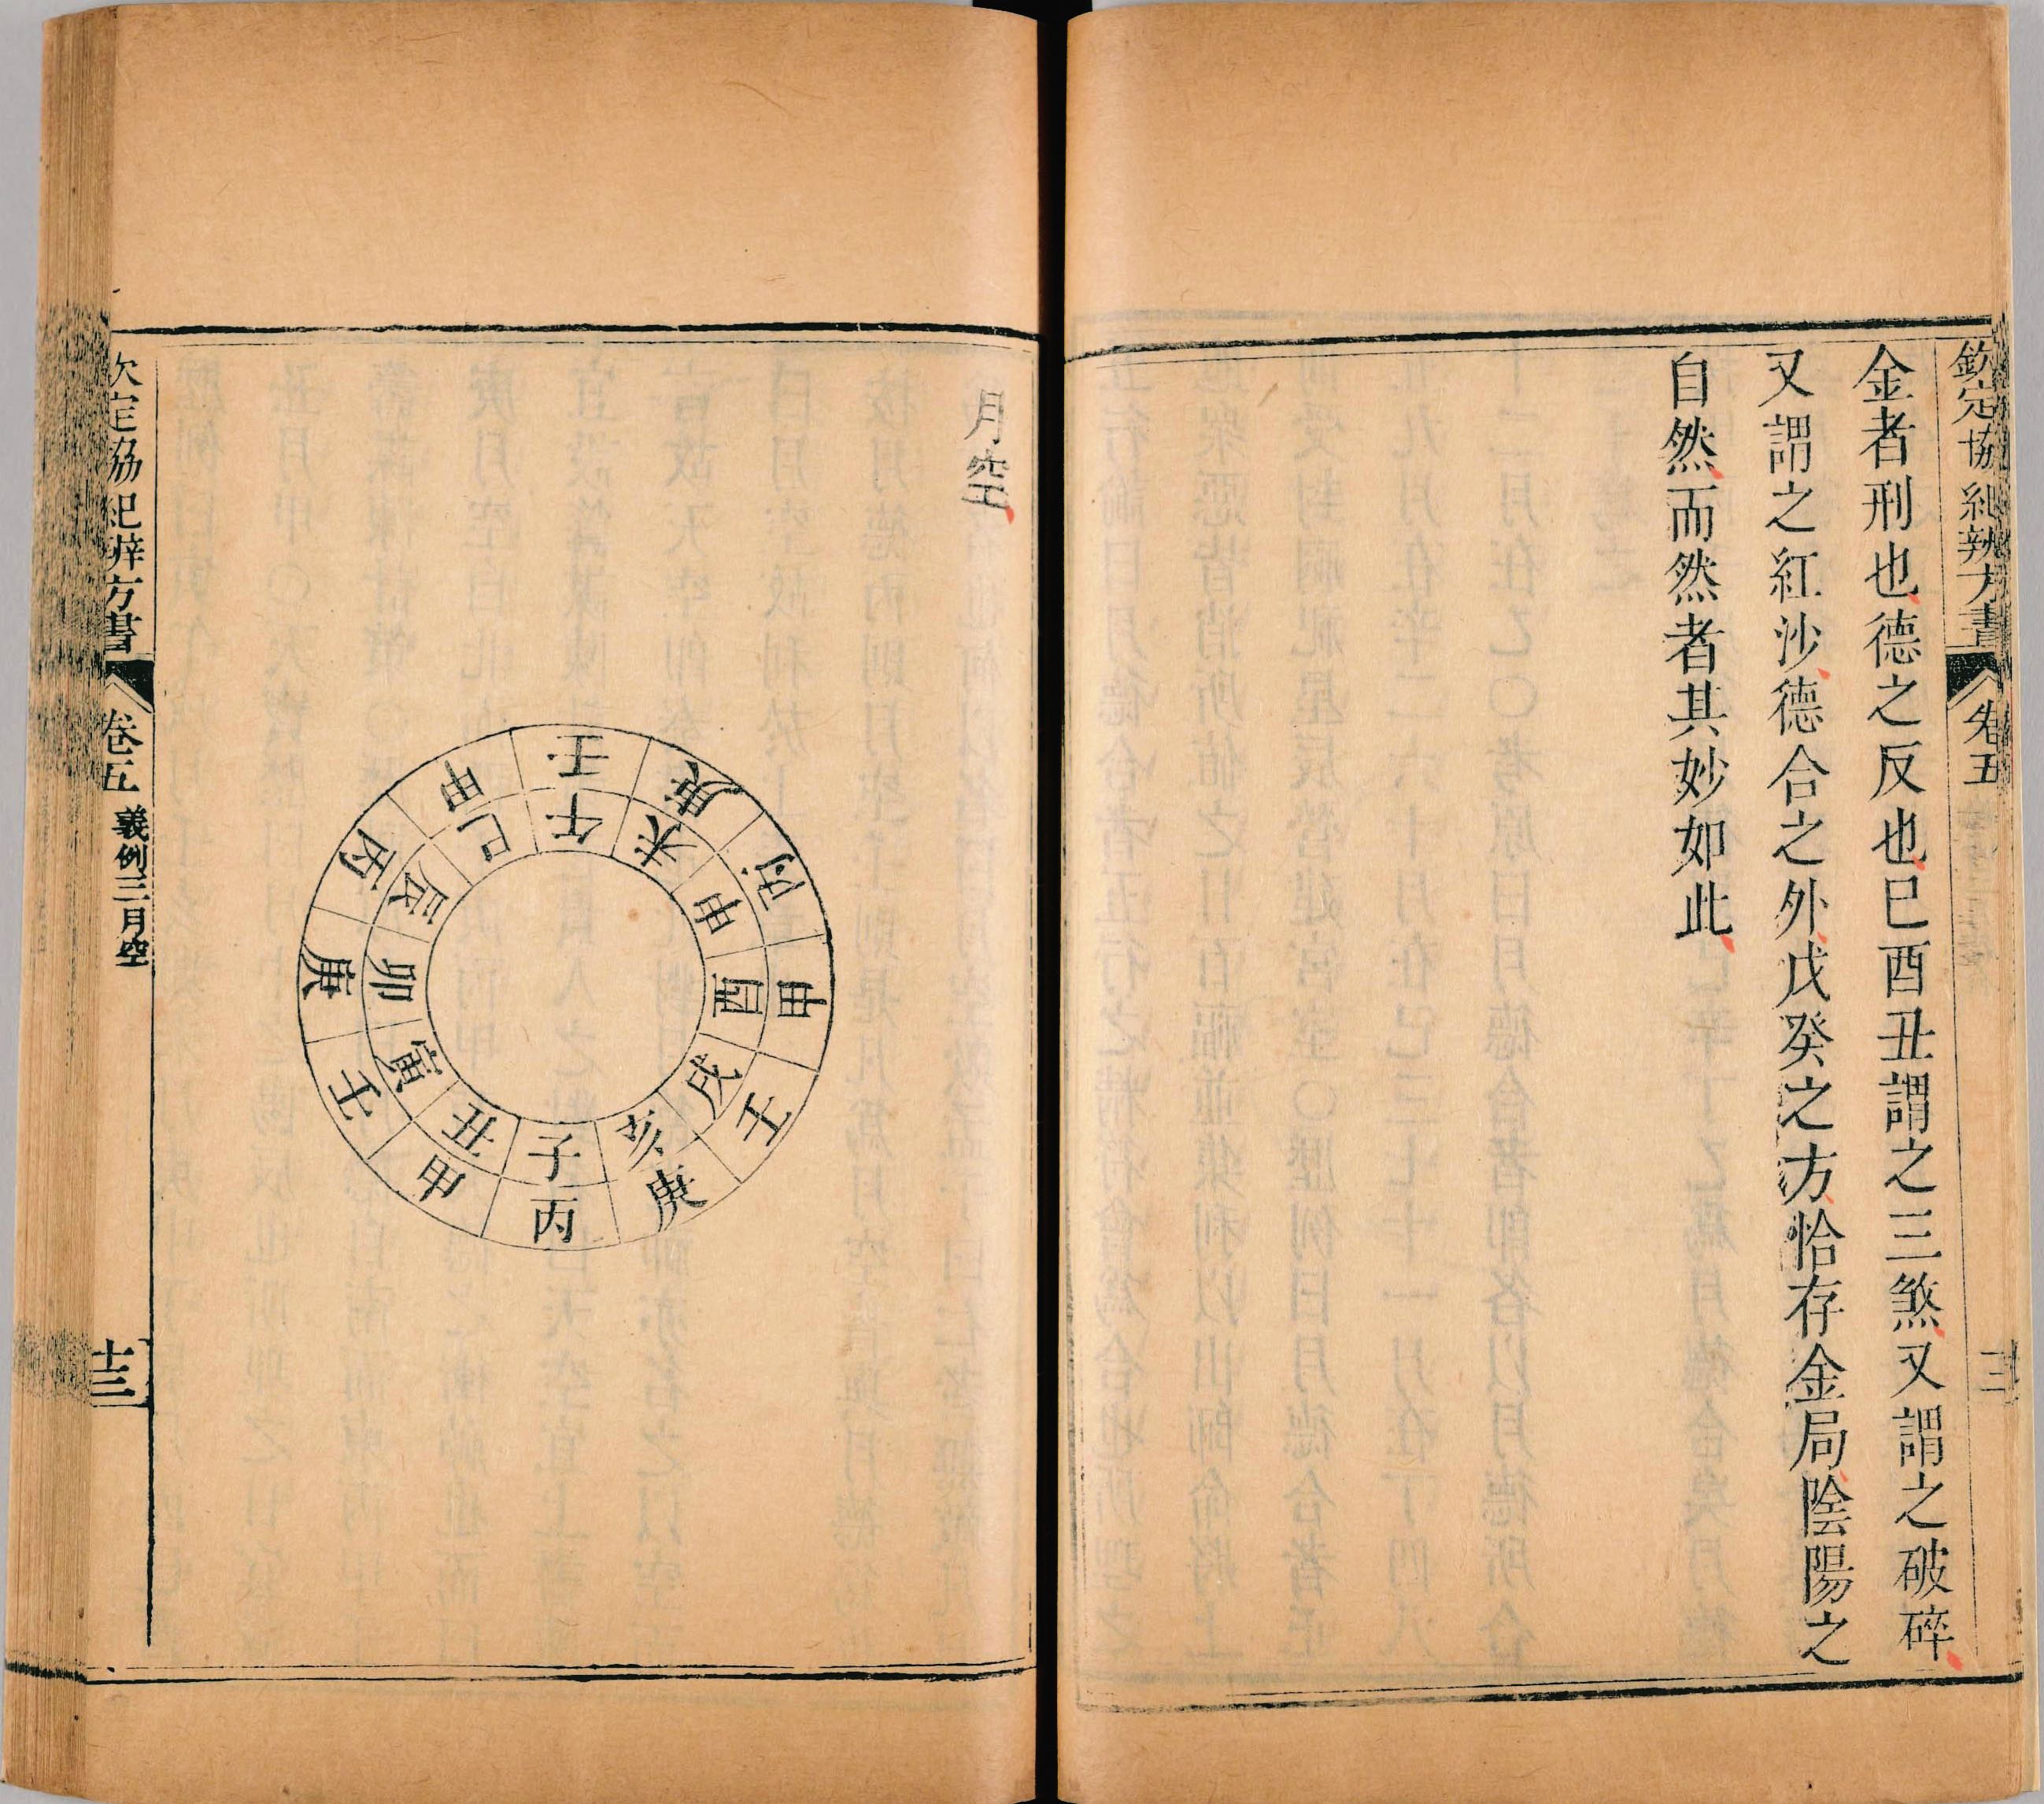 欽定協紀辨方書 卷五
金者刑也德之反也巳酉丑謂之三煞又謂之破碎
又謂之紅沙德合之外戊癸之方恰存金局陰陽之
自然而然者其妙如此
月空
壬 庚 丙 甲 壬 庚 丙 甲 壬 庚 丙 甲
午 未 申 酉 戌 亥 子 丑 寅 卯 辰 巳
欽定協紀辨方書 卷五 義例三月空 十三